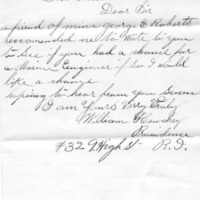 Dear Sir
a friend of mine george E Roberts
reccomended me to write to you
to See if you had a chance for
a Engineer if So I would
like a change
hoping to hear from you Soon
I am Yours Very Truly
William
Providence
#32 High St R.I.